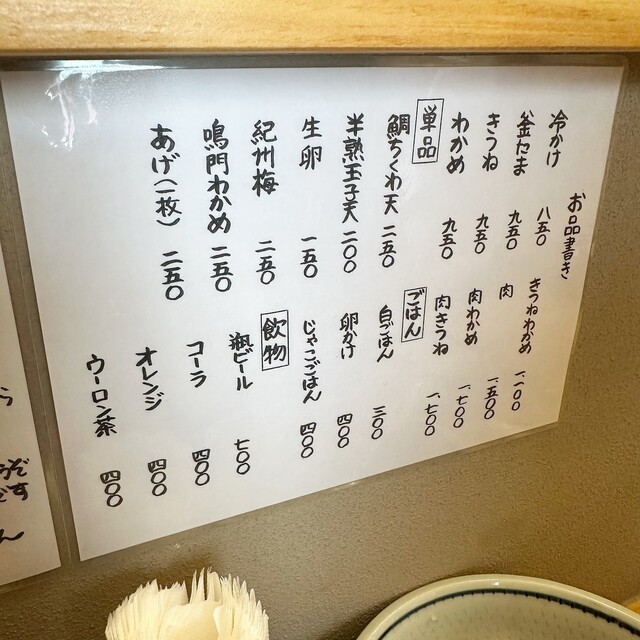 お品書き
冷かけ 八五〇
釜たま 九五〇
きつね 九五〇
わかめ 九五〇
きつねわかめ 一、一〇〇
肉 一、五〇〇
肉わかめ 一、七〇〇
肉きつね 一、七〇〇
単品
鯛ちくわ天 二五〇
半熟玉子天 二〇〇
生卵 一五〇
紀州梅 二五〇
鳴門わかめ 二五〇
あげ(一枚) 二五〇
ごはん
白ごはん 三〇〇
卵かけ 四〇〇
じゃこごはん 四〇〇
飲物
瓶ビール 七〇〇
コーラ 四〇〇
オレンジ 四〇〇
ウーロン茶 四〇〇